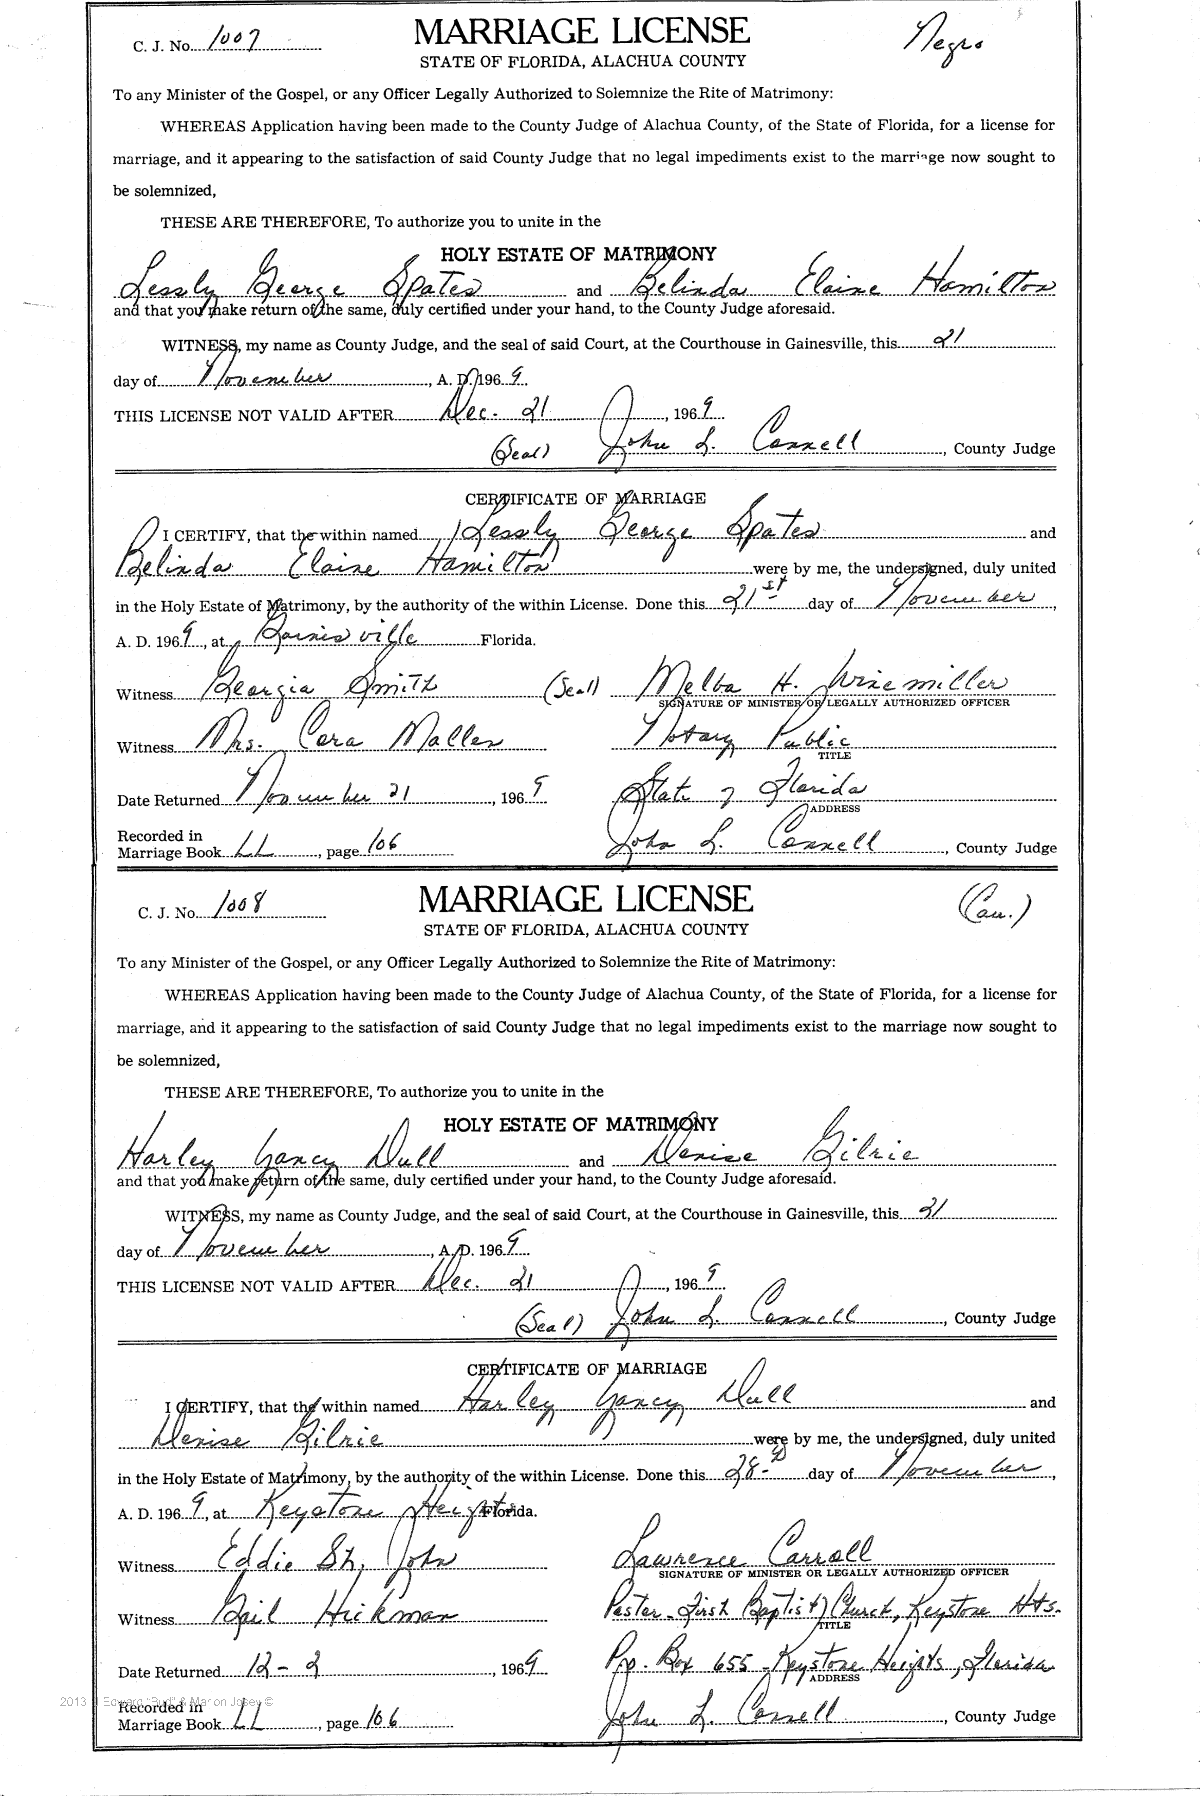 C. J. No. 1007
MARRIAGE LICENSE
Negro
STATE OF FLORIDA, ALACHUA COUNTY
To any Minister of the Gospel, or any Officer Legally Authorized to Solemnize the Rite of Matrimony:
WHEREAS Application having been made to the County Judge of Alachua County, of the State of Florida, for a license for
marriage, and it appearing to the satisfaction of said County Judge that no legal impediments exist to the marriage now sought to
be solemnized,
THESE ARE THEREFORE, To authorize you to unite in the
HOLY ESTATE OF MATRIMONY
Lessly George Spates and Belinda Elaine Hamilton
and that you make return of the same, duly certified under your hand, to the County Judge aforesaid.
WITNESS, my name as County Judge, and the seal of said Court, at the Courthouse in Gainesville, this 21
day of November, A. D. 1969.
THIS LICENSE NOT VALID AFTER Dec. 21, 1969
(Seal) John L. Connell, County Judge
CERTIFICATE OF MARRIAGE
I CERTIFY, that the within named Lessly George Spates and
Belinda Elaine Hamilton were by me, the undersigned, duly united
in the Holy Estate of Matrimony, by the authority of the within License. Done this 21st day of November,
A. D. 1969, at Gainisville Florida.
Witness Georgia Smith (Seal) Melba H. Winemiller
SIGNATURE OF MINISTER OR LEGALLY AUTHORIZED OFFICER
Witness Mrs. Cora Mallen Notary Public
TITLE
Date Returned November 21, 1969 State of Florida
ADDRESS
Recorded in
Marriage Book LL, page 106 John L. Connell, County Judge
C. J. No. 1008
MARRIAGE LICENSE
(Cau.)
STATE OF FLORIDA, ALACHUA COUNTY
To any Minister of the Gospel, or any Officer Legally Authorized to Solemnize the Rite of Matrimony:
WHEREAS Application having been made to the County Judge of Alachua County, of the State of Florida, for a license for
marriage, and it appearing to the satisfaction of said County Judge that no legal impediments exist to the marriage now sought to
be solemnized,
THESE ARE THEREFORE, To authorize you to unite in the
HOLY ESTATE OF MATRIMONY
Harley Yancy Dull and Denise Gilrie
and that you make return of the same, duly certified under your hand, to the County Judge aforesaid.
WITNESS, my name as County Judge, and the seal of said Court, at the Courthouse in Gainesville, this 21
day of November, A. D. 1969.
THIS LICENSE NOT VALID AFTER Dec. 21, 1969
(Seal) John L. Connell, County Judge
CERTIFICATE OF MARRIAGE
I CERTIFY, that the within named Harley Yancy Dull and
Denise Gilrie were by me, the undersigned, duly united
in the Holy Estate of Matrimony, by the authority of the within License. Done this 28 day of November,
A. D. 1969, at Keystone Heights Florida.
Witness Eddie St. John Lawrence Carroll
SIGNATURE OF MINISTER OR LEGALLY AUTHORIZED OFFICER
Witness Gail Hickman Pastor - First Baptist Church, Keystone Hts.
TITLE
Date Returned 12-2, 1969 P.o. Box 655 - Keystone Heights, Florida
ADDRESS
2013 Edward "Bud" & Marion Josey ©
Recorded in
Marriage Book LL, page 106 John L. Connell, County Judge